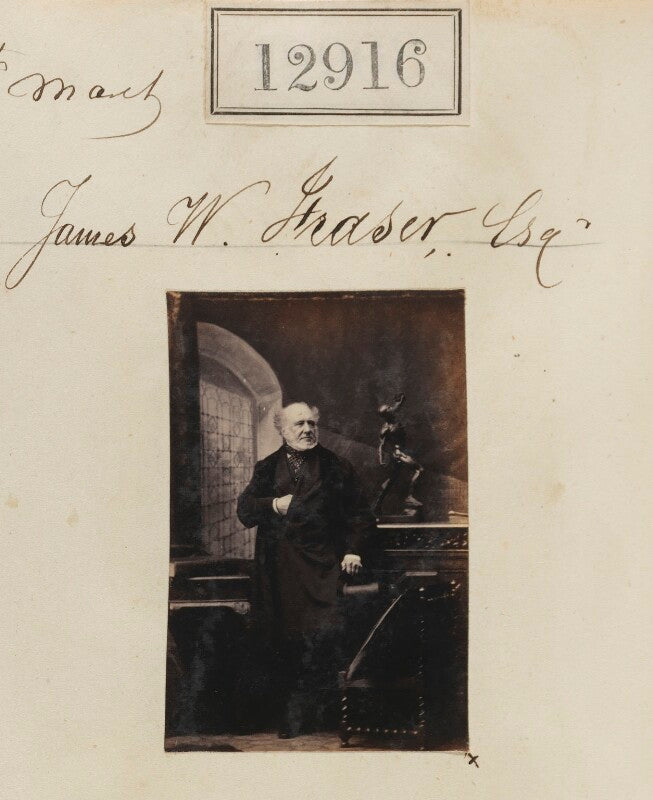 12916
March
James W. Fraser, Esqr
x